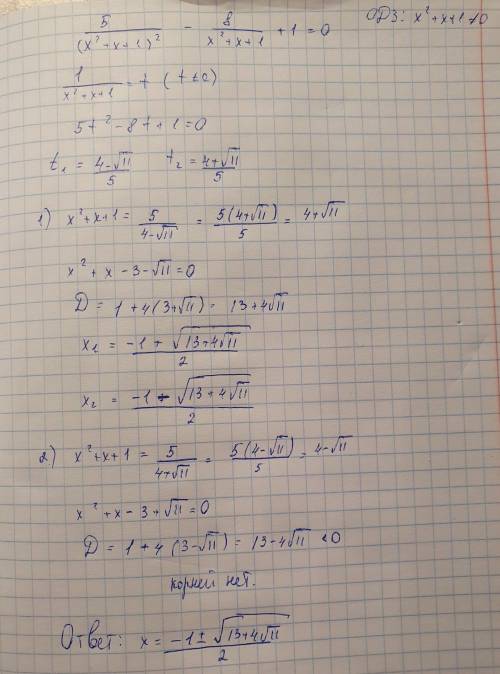 5/(x²+x+1)² - 8/(x²+x+1) + 1 = 0   ОДЗ: x²+x+1≠0
1/(x²+x+1) = t (t≠0)
5t²-8t+1=0
t₁ = (4-√11)/5   t₂ = (4+√11)/5
1) x²+x+1 = 5/(4-√11) = 5(4+√11)/5 = 4+√11
x²+x-3-√11=0
D = 1+4(3+√11) = 13+4√11
x₁ = (-1+√(13+4√11))/2
x₂ = (-1-√(13+4√11))/2
2) x²+x+1 = 5/(4+√11) = 5(4-√11)/5 = 4-√11
x²+x-3+√11=0
D = 1+4(3-√11) = 13-4√11 <0
корней нет.
Ответ: x = (-1±√(13+4√11))/2